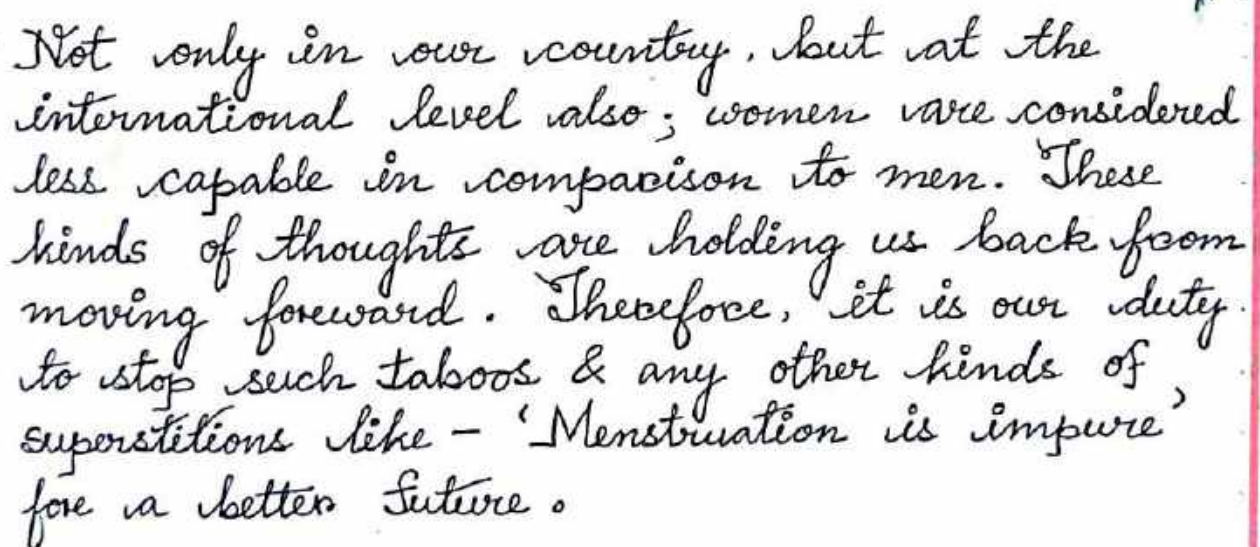 Not only in our country, but at the
international level also; women are considered
less capable in comparison to men. These
kinds of thoughts are holding us back from
moving foreward. Therefore, it is our duty
to stop such taboos & any other kinds of
superstitions like - 'Menstruation is impure'
for a better future.